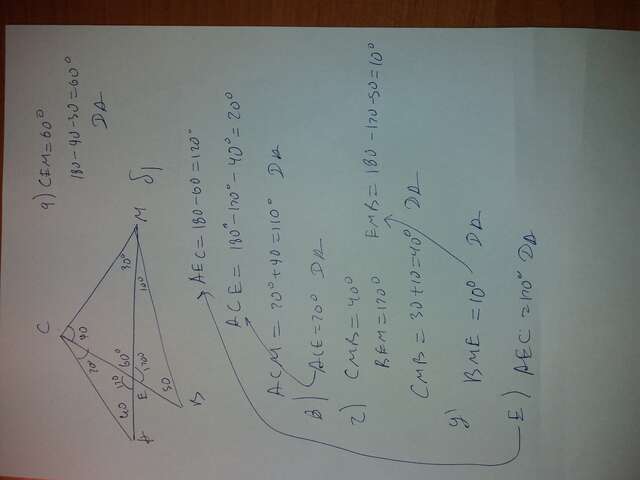 C
а) CEM = 60°
20° 90
180 - 90 - 30 = 60°
ДА
40 120 60° 30°
A E 120° 10° M б)
50
B
AEC = 180 - 60 = 120°
ACE = 180° - 120° - 40° = 20°
ACM = 20° + 90 = 110° ДА
в) ACE = 20° ДА
г) CMB = 40°
BEM = 120° EMB = 180 - 120 - 50 = 10°
CMB = 30 + 10 = 40° ДА
д)
BME = 10° ДА
Е) AEC = 120° ДА